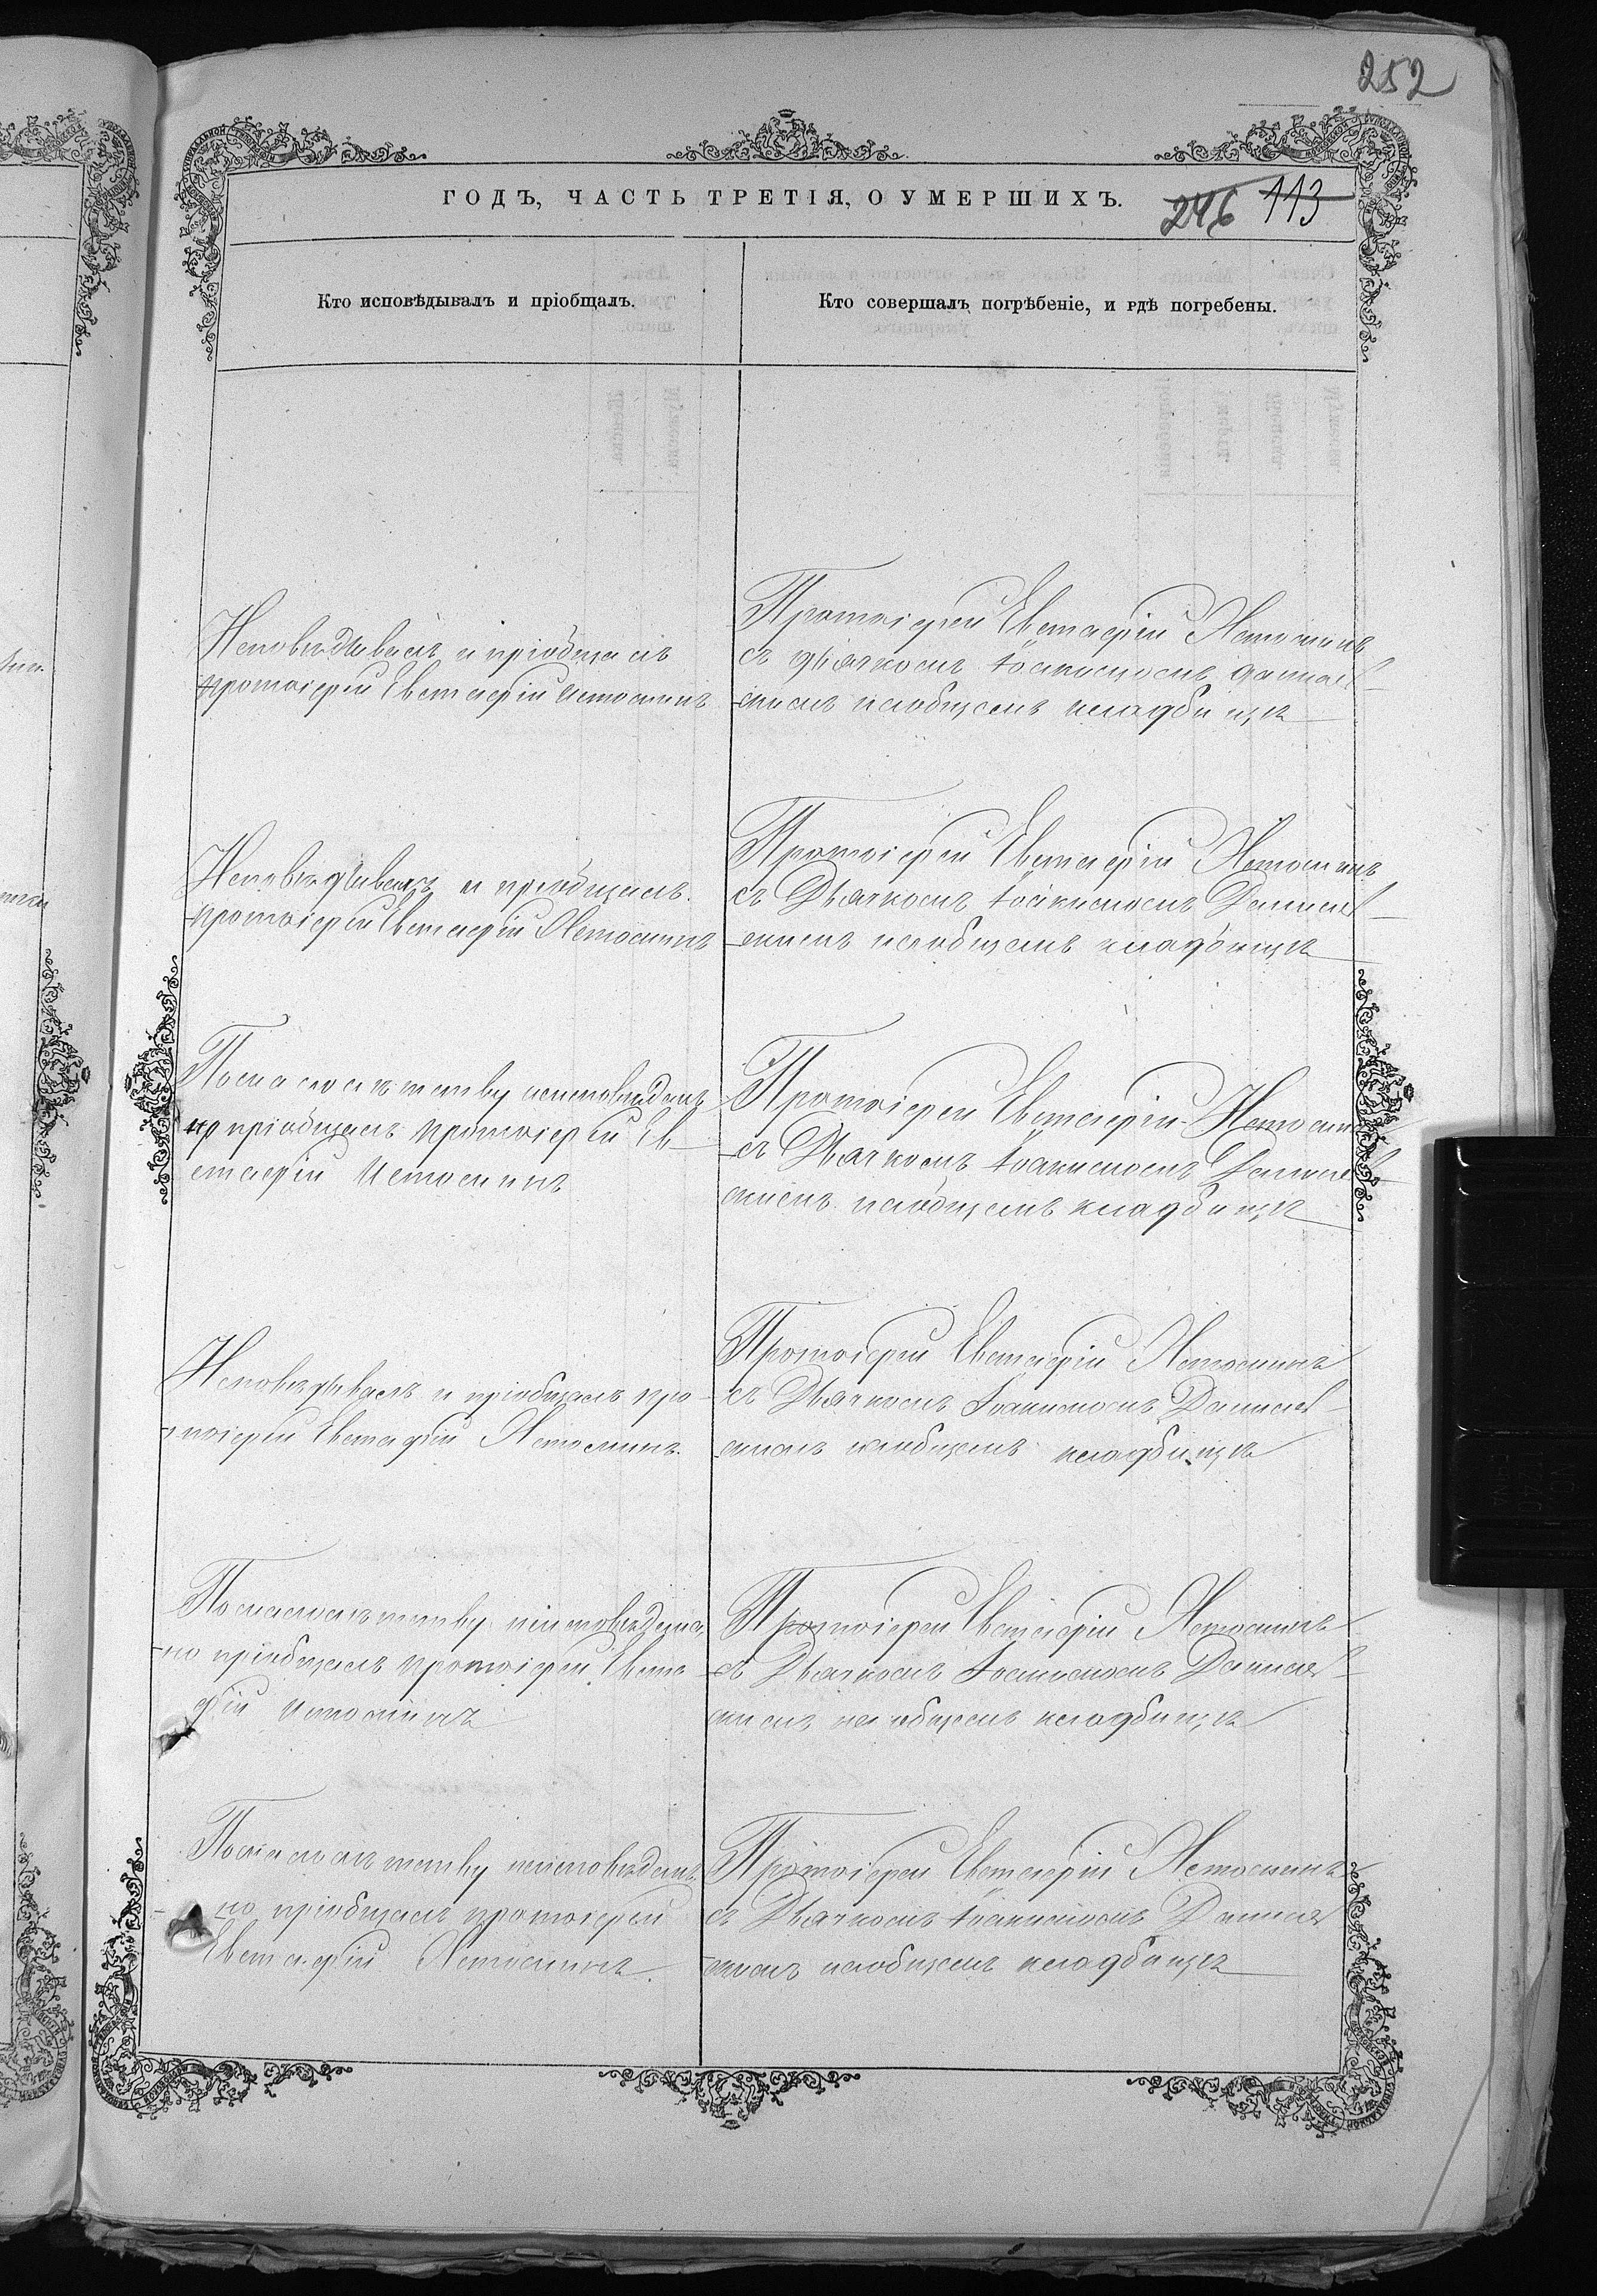 252
ГОДЪ, ЧАСТЬ ТРЕТІЯ, О УМЕРШИХЪ.
246 113
Кто исповѣдывалъ и пріобщалъ.
Кто совершалъ погрѣбеніе, и гдѣ погребены.
Исповѣдывалъ и пріобщалъ
протоіерей Евстафій Истоминъ
Протоіерей Евстафій Истоминъ
съ дьячкомъ Іоакимомъ
на общемъ кладбищѣ
Исповѣдывалъ и пріобщалъ
протоіерей Евстафій Истоминъ
Протоіерей Евстафій Истоминъ
съ Дьячкомъ Іоакимомъ
на общемъ кладбищѣ
По малолѣтству неисповѣданъ
но пріобщалъ протоіерей Ев
стафій Истоминъ
Протоіерей Евстафій Истоминъ
съ Дьячкомъ Іоакимомъ
на общемъ кладбищѣ
Исповѣдывалъ и пріобщалъ про
тоіерей Евстафій Истоминъ
Протоіерей Евстафій Истоминъ
съ Дьячкомъ Іоакимомъ
на общемъ кладбищѣ
По малолѣтству неисповѣдана
но пріобщалъ протоіерей Евста
фій Истоминъ
Протоіерей Евстафій Истоминъ
съ Дьячкомъ Іоакимомъ
на общемъ кладбищѣ
По малолѣтству неисповѣданъ
но пріобщалъ протоіерей
Евстафій Истоминъ
Протоіерей Евстафій Истоминъ
съ Дьячкомъ Іоакимомъ
на общемъ кладбищѣ